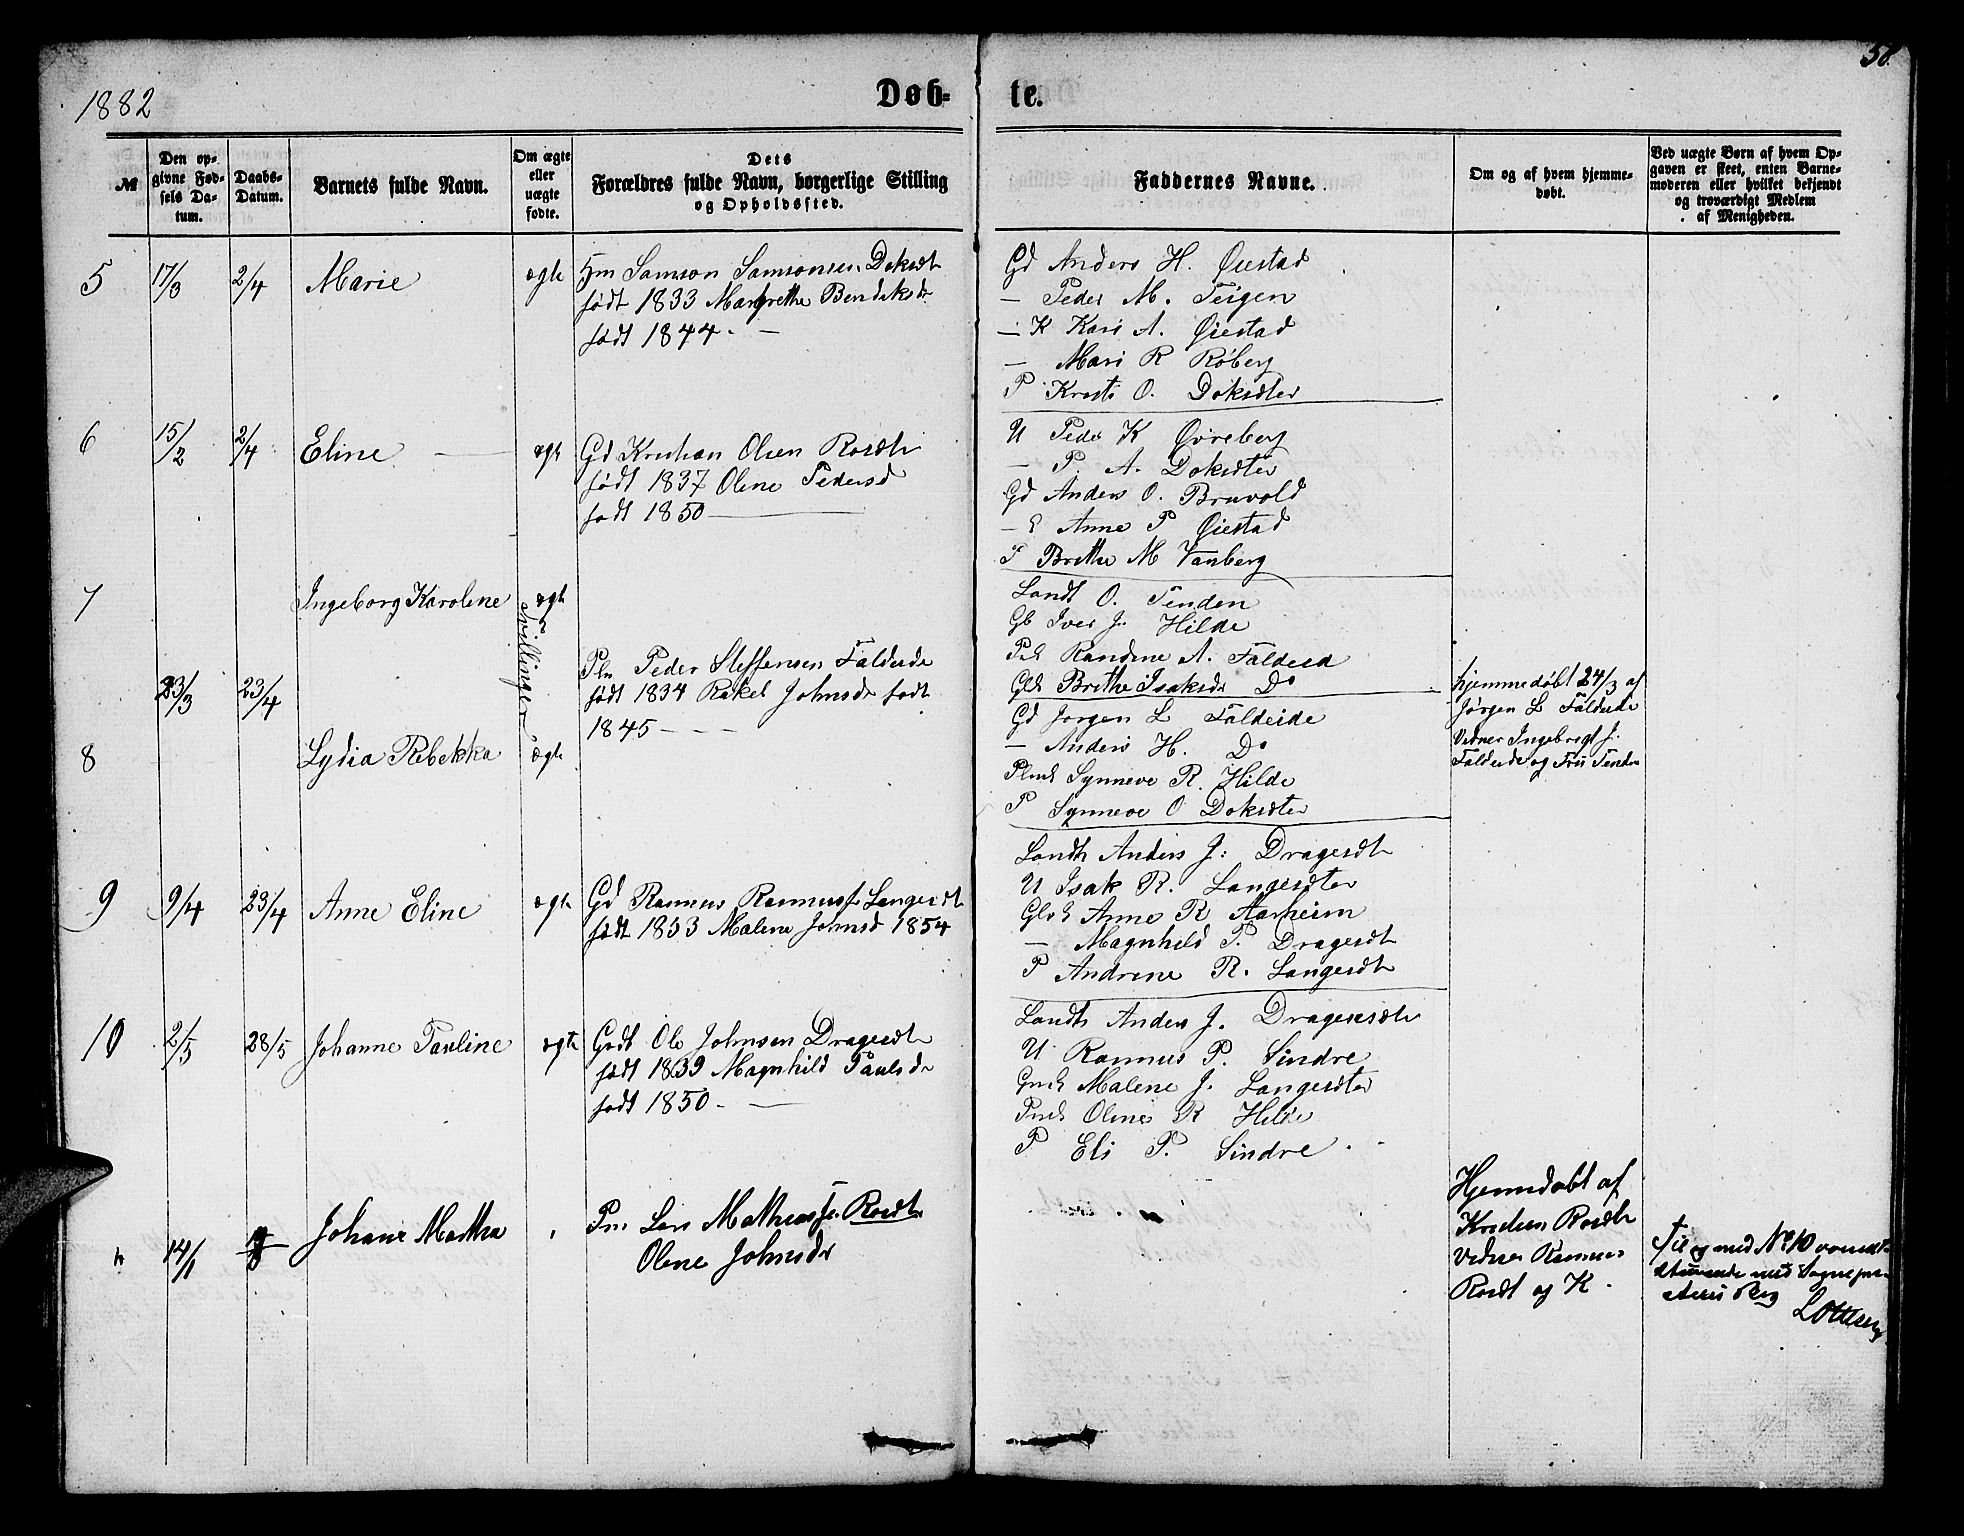 58.
1882
Døb-
te.
№
Den op-
givne Fød-
sels Da-
tum.
Daabs-
Datum.
Barnets fulde Navn.
Om ægte
eller
uægte
fødte.
Dets
Forældres fulde Navn, borgerlige Stilling
og Opholdssted.
Faddernes Navne.
Om og af hvem hjemme-
døbt.
Ved uægte Børn af hvem Op-
gaven er skeet, enten Barne-
moderen eller hvilket bekjendt
og troværdigt Medlem
af Menigheden.
5 17/3 2/4 Marie ægte
Samson Samsonsen Doksdtr
født 1833 Margrethe Bendiksdr
født 1844
Gd Anders H. Øiestad
— Peder M. Teigen
— K Kari A. Øiestad
— Mari R Røberg
P Kristi O. Doksdter
6 15/2 2/4 Eline ægte
Gd Kristian Olsen Rosdtr
født 1837 Olene Pedersd
født 1850
U Peder K Øvreberg
— P. A. Doksdter
Gd Anders O. Bruvold
— Anne P Øiestad
P Brithe M Vanberg
7 Ingeborg Karoline ægte
Tvillinger
23/3 23/4
Plm Peder Steffensen Faldeide
født 1834 Rakel Johnsdr født
1845
Landh O. Tenden
Gb Iver J. Hilde
Randine A. Faldeid
Brithe Isaksdr Do
hjemmedøbt 24/3 af
Jørgen L Faldeide
Vidner Ingebrigt J.
Faldeide og Fru Tenden
8 Lydia Rebekka ægte
Gd Jørgen L Faldeide
— Anders H. Do
Synneve R. Hilde
P Synneve O Doksdter
9 9/4 23/4 Anne Eline ægte
Gd Rasmus Rasmuss. Langesdt
født 1853 Malene Johnsd 1854
Landh Anders J. Dragesdtr
U Isak R. Langesdter
Anne R Aarheim
— Magnhild P. Dragesdtr
P Andrine R. Langesdtr
10 2/5 28/5 Johanne Pauline ægte
Ole Johnsen Dragesdtr
født 1839 Magnhild Paulsdr
født 1850
Landh Anders J. Dragesdtr
U Rasmus P. Sindre
Malene J. Langesdter
Oline R Hilde
P Eli P. Sindre
14/1 Johane Martha
Pm Lars Mathiass. Rosdtr
Olene Johnsdr
Hjemmedøbt af
Kristian Rosdtr
Vidner Rasmus
Rosdt og K
Til og med No 10 overens-
stemmende med Sognepræ-
LOttesen